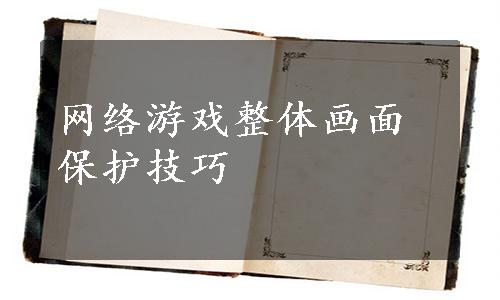 网络游戏整体画面
保护技巧